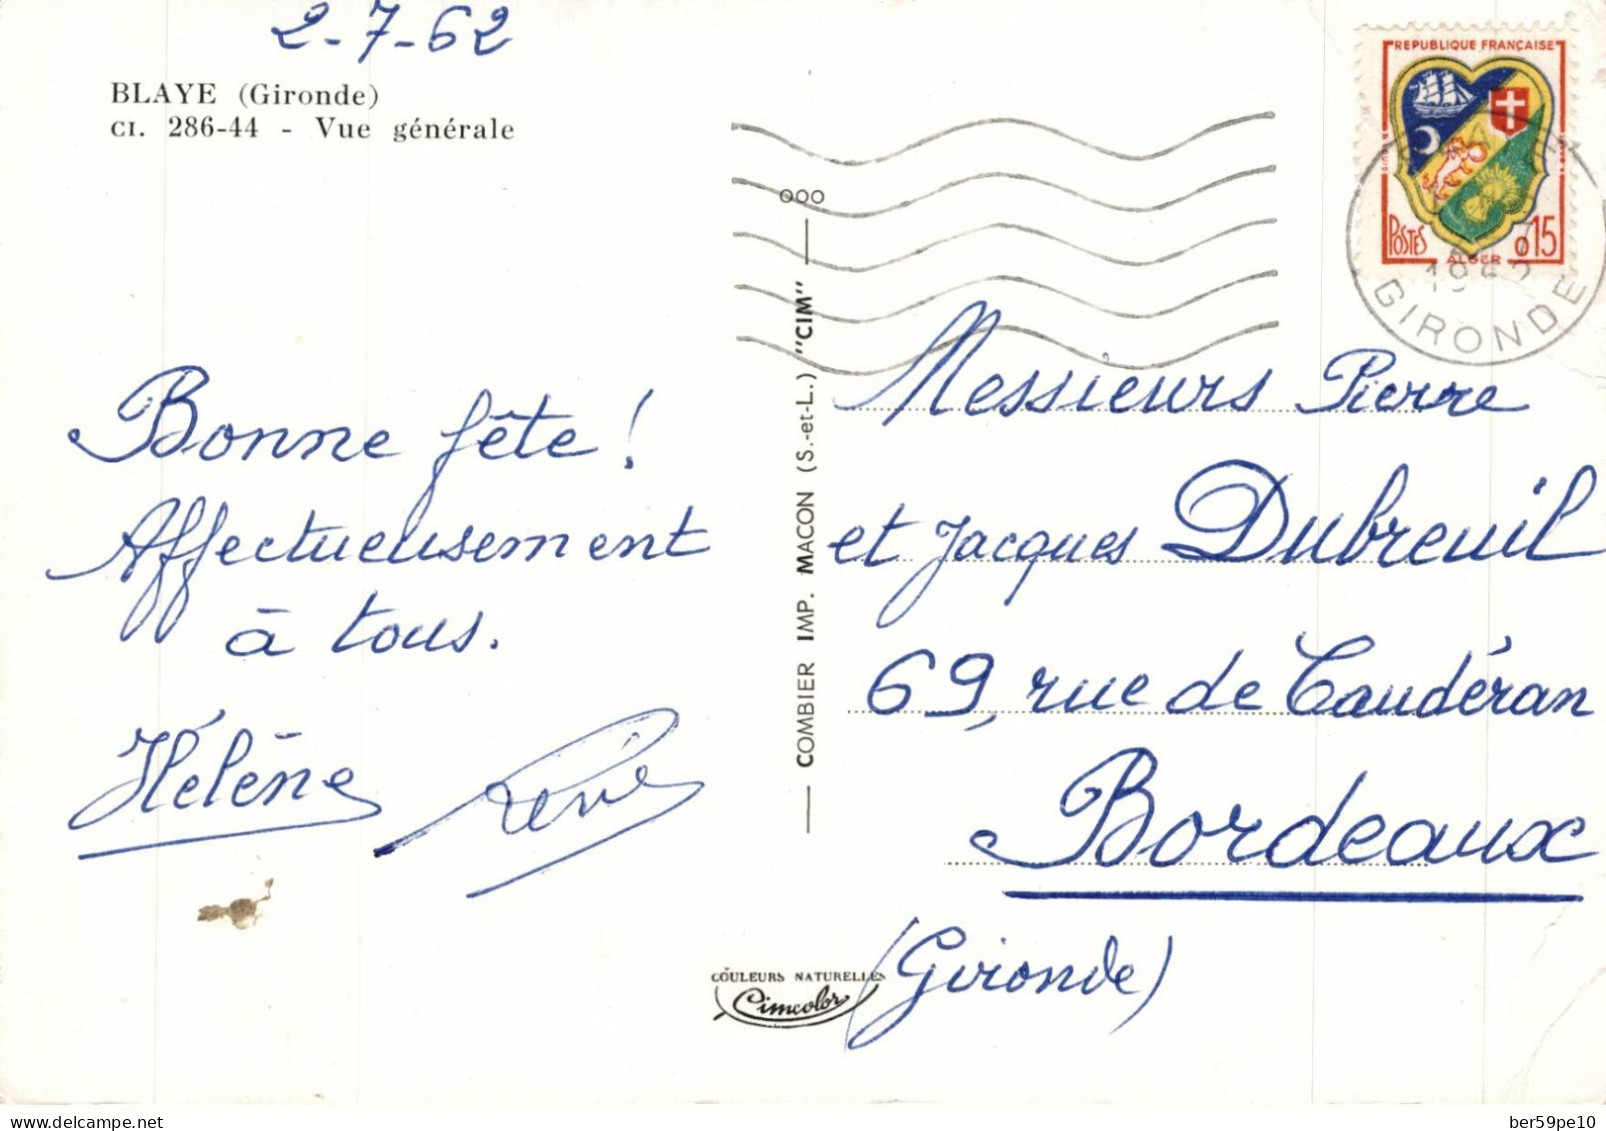 2-7-62
BLAYE (Gironde)
CI. 286-44 - Vue générale
Bonne fête !
Affectueusement
à tous.
Hélène
René
COMBIER IMP. MACON (S.-et-L.) "CIM"
COULEURS NATURELLES
Cimcolor
REPUBLIQUE FRANÇAISE
POSTES
ALGER
0,15
1962
GIRONDE
Messieurs Pierre
et Jacques Dubreuil
69, rue de Caudéran
Bordeaux
(Gironde)
delcampe.net
ber59pe10